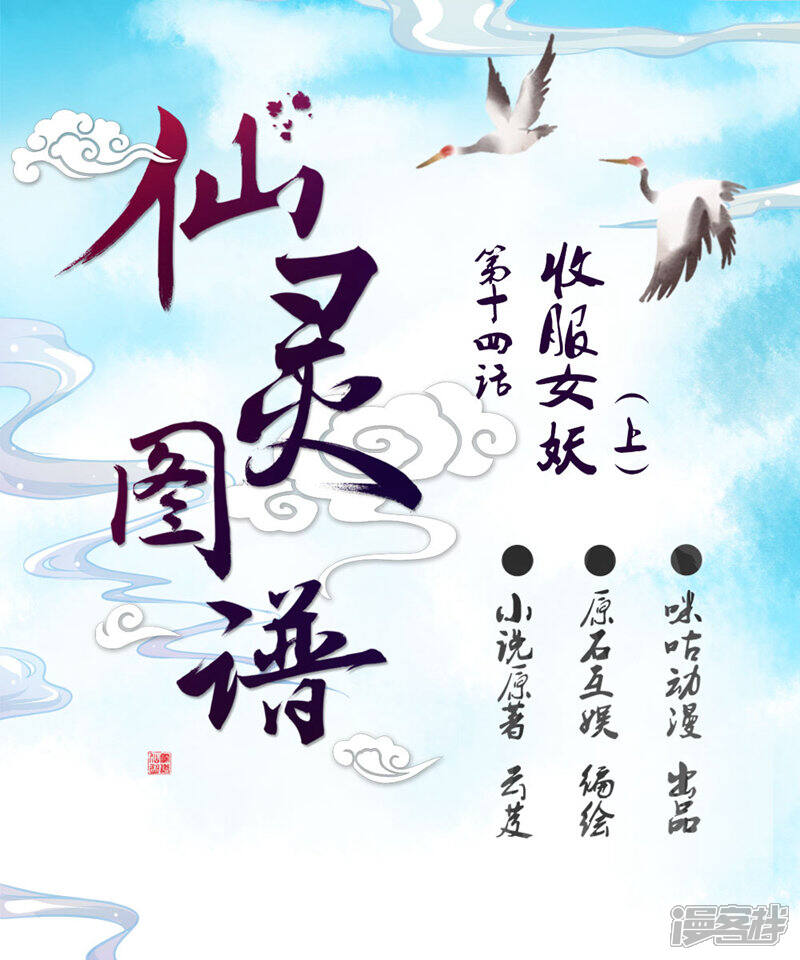 仙灵图谱
第十四话
收服女妖
(上)
咪咕动漫 出品
原石互娱 编绘
小说原著 云芨
漫客栈